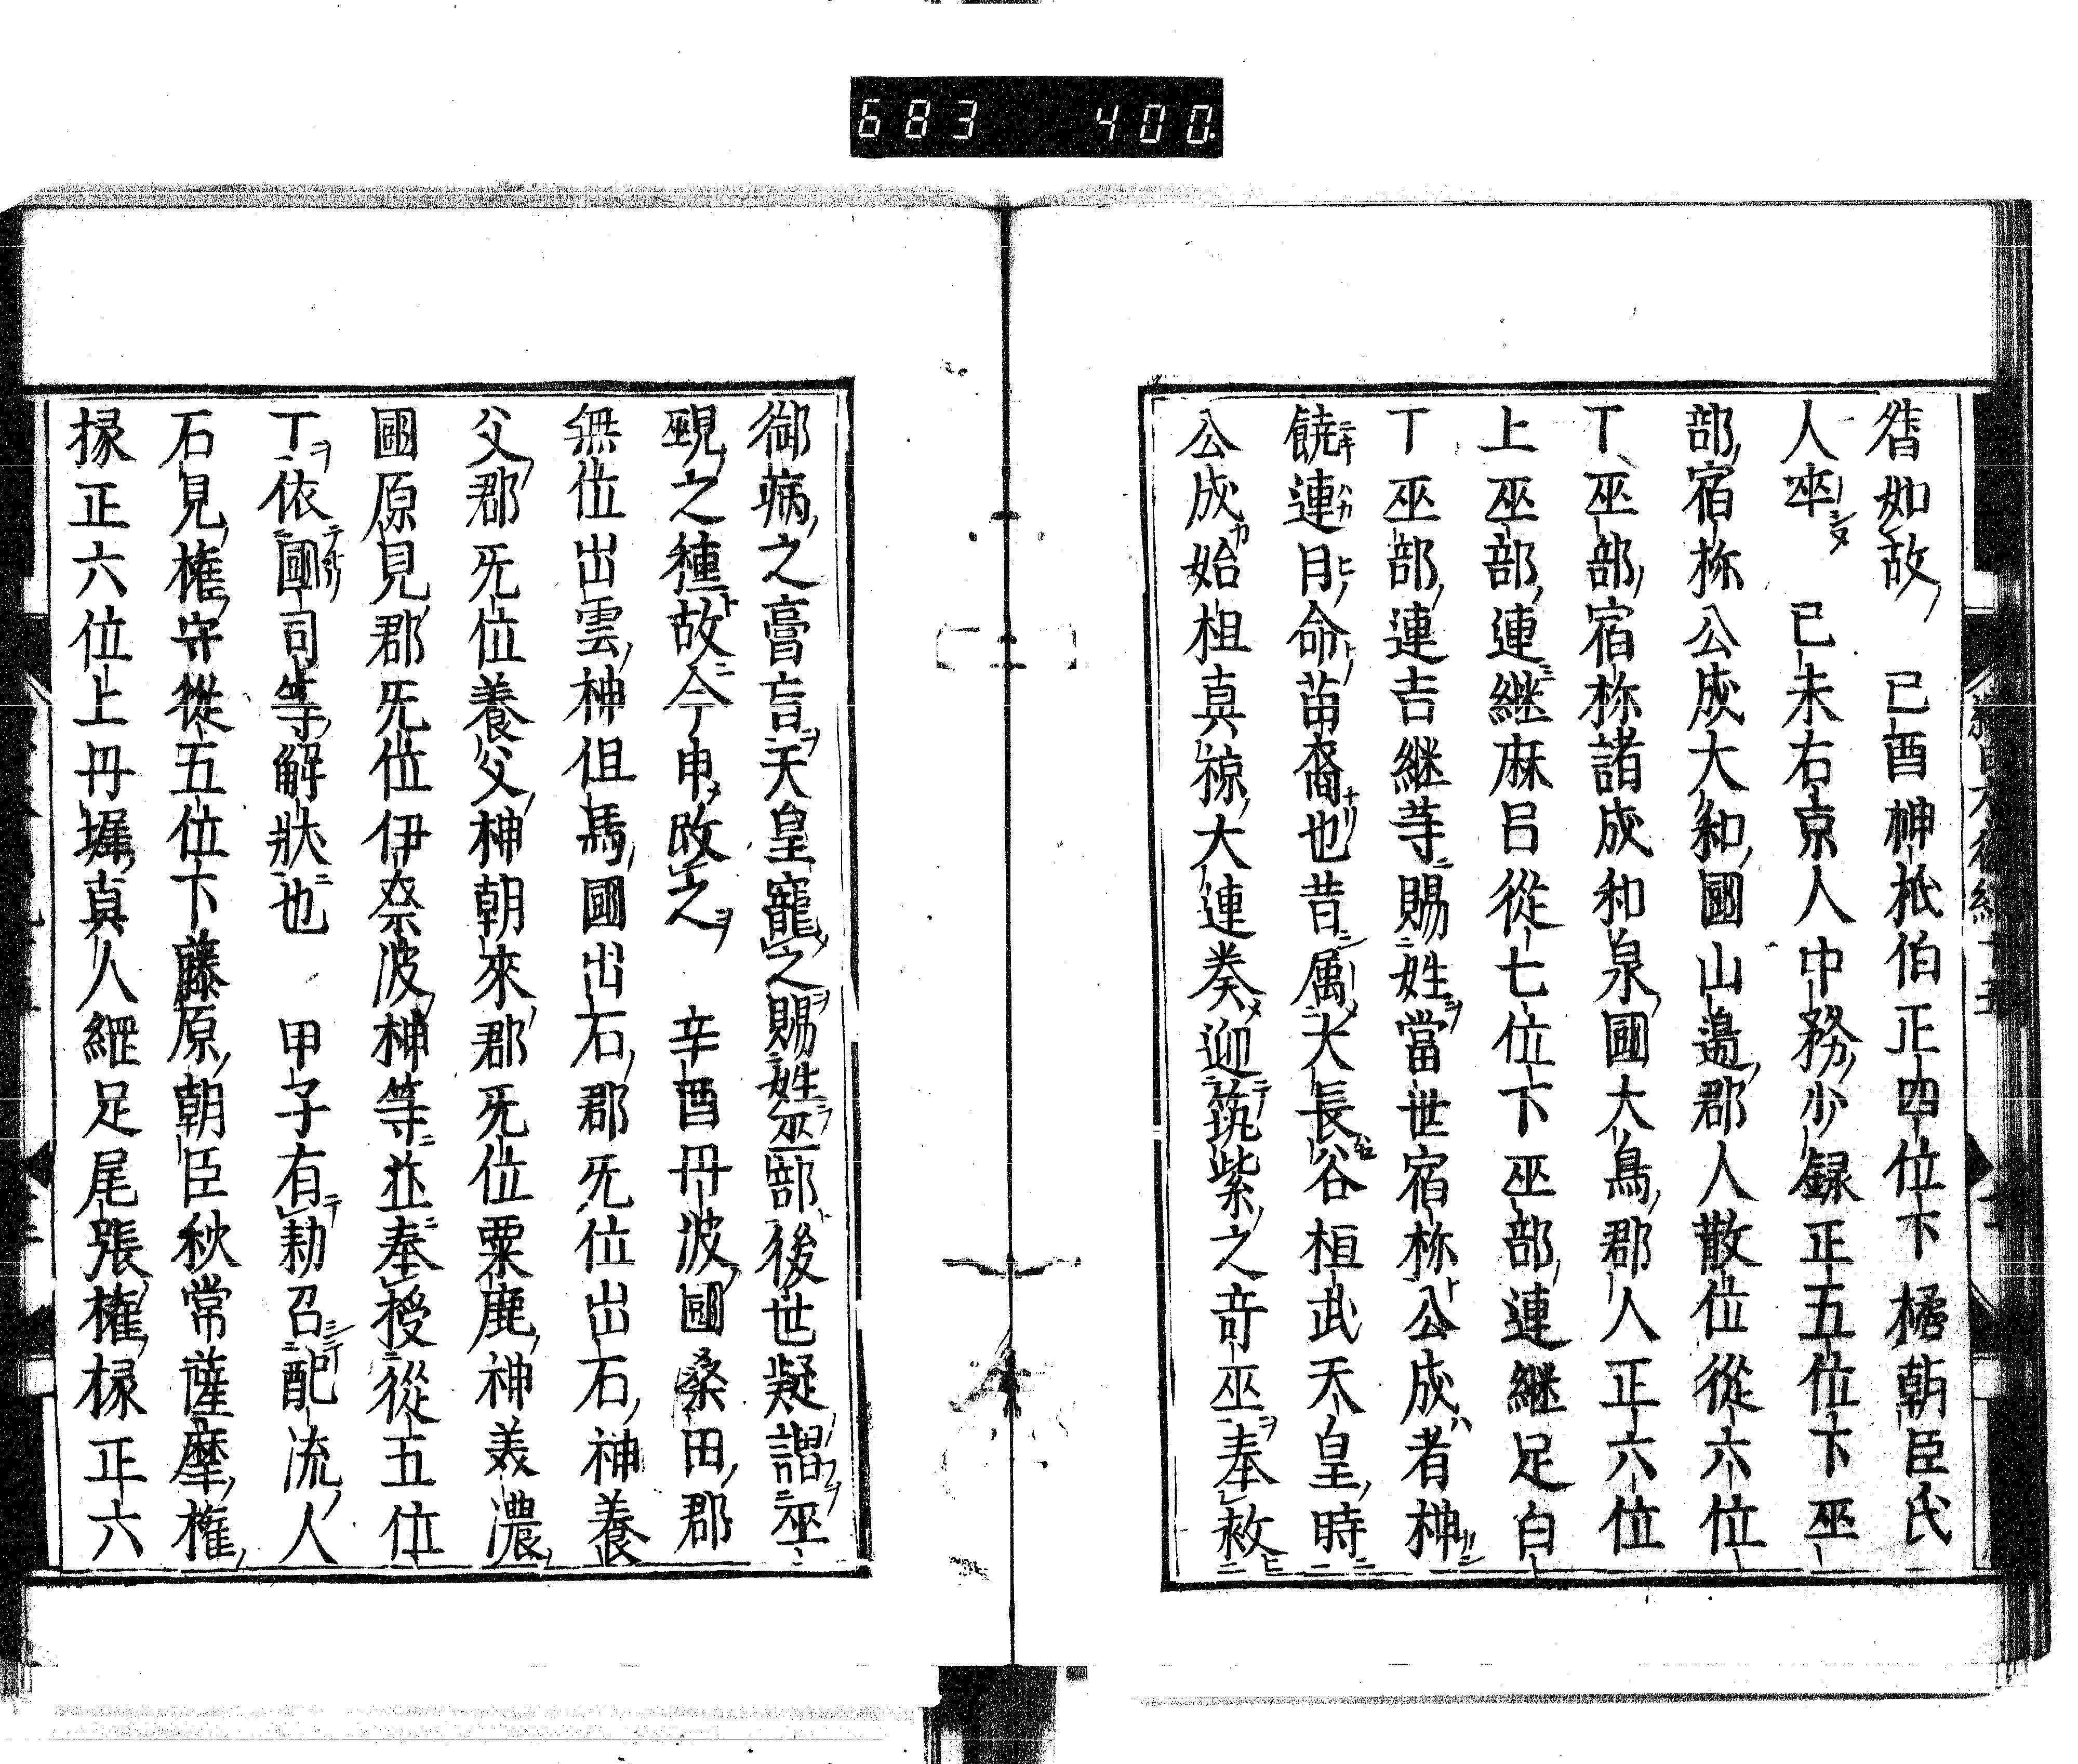 683 400
㫺如故 已酉神祇伯正四位下橘朝臣氏
人卒 已未右京人中務少録正五位下巫
部宿祢公成大和國山邉郡人散位從六位
丁巫部宿祢諸成和泉國大鳥郡人正六位
上巫部連継麻呂從七位下巫部連継足白
丁巫部連吉継等賜姓當世宿祢公成者神
饒速日命苗裔也昔属大長谷桓武天皇時
公成始祖真椋大連奏迎筑紫之竒巫奉救
御病之膏肓天皇寵之賜姓巫部後世疑謂巫
覡之種故今申改之 辛酉丹波國桑田郡
無位出雲神但馬國出石郡旡位出石神養
父郡旡位養父神朝來郡旡位粟鹿神美濃
國原見郡旡位伊奈波神等並奉授從五位
丁依國司等解狀也 甲子有勅召配流人
石見權守從五位下藤原朝臣秋常薩摩權
掾正六位上丹墀真人縄足尾張權掾正六